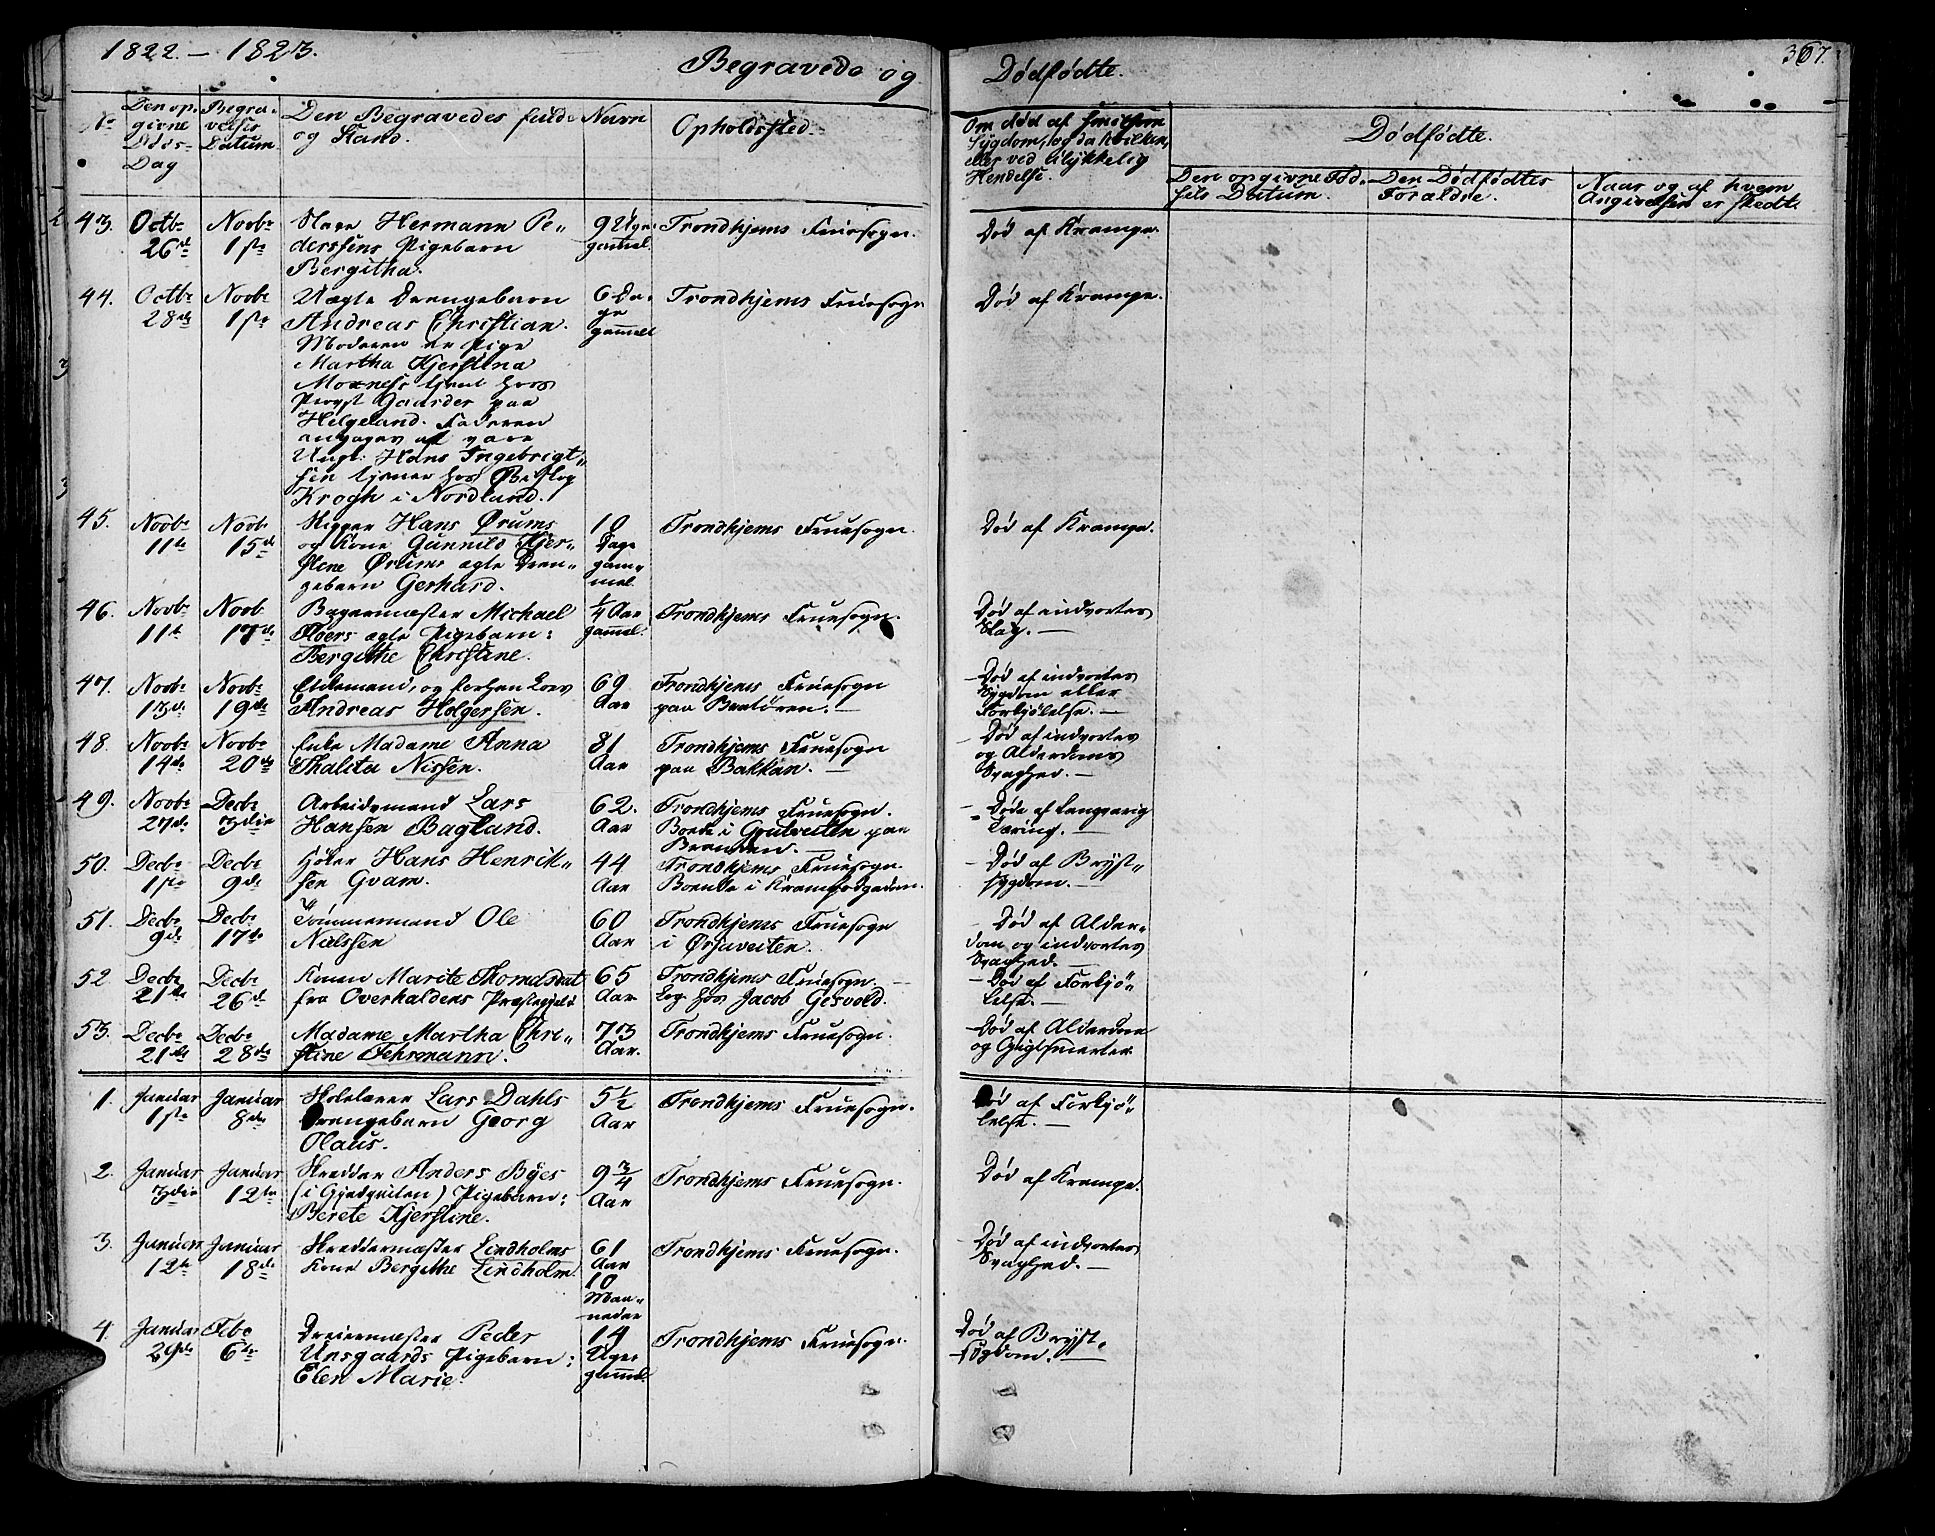 1822. – 1823.
Begravede og
Dødfødte.
367.
No
Den op-
givne
Døds-
Dag
Begra-
velses
Datum.
Den Begravedes fulde Navn
og Stand.
Opholdssted.
Om død af smitsom
Sygdom, og da hvilken,
eller ved ulykkelig
Hendelse.
Dødfødte.
Den opgivne Fød-
sels Datum.
Den Dødfødtes
Forældre.
Naar og af hvem
Angivelsen er skedt.
43.
Octbr
26de
Novbr
1ste
Hermann Pe-
derssens Pigebarn
Bergitha.
9 Uger
gammel.
Trondhjems Fruesogn.
Død af Krampe.
44.
Octbr
28de
Novbr
1ste
Uægte Drengebarn
Andreas Christian.
Moderen er Pige
Martha Kjerstina
Moxness tjent hos
Provst Gaarder paa
Helgeland. Faderen
angages at være
Ungk: Hans Ingebrigt-
sen tjener hos Biskop
Krogh i Nordland.
6 Da-
ge
gammel
Trondhjems Fruesogn
Død af Krampe.
45.
Novbr
11te
Novbr
15de
Hans Ørums
og Kone Gunnild Kjer-
stine Ørums ægte Dren-
gebarn Gerhard.
10
Dage
gam-
mel.
Trondhjems Fruesogn.
Død af Krampe.
46.
Novbr
11te
Novb
17de
Bagermæster Michael
Floers ægte Pigebarn:
Bergithe Christine.
1/4 Aar
gammel.
Trondhjems Fruesogn.
Død af indvortes
Slag. –
47.
Novbr
13de
Novbr
19de
Enkemand, og forhen
Andreas Holgersen.
69
Aar
Trondhjems Fruesogn
paa Bratøren. –
– Død af indvortes
Sygdom eller
Forkjølelse. –
48.
Novbr
14de
Novbr
20de
Enke Madame Anna
Thalita Nissen.
81
Aar
Trondhjems Fruesogn
paa Bakkan. –
– Død af indvortes
og Alderdoms
Svaghed. –
49.
Novbr
27de
Decbr
3die
Arbeidsmand Lars
Hansen Bagland.
62.
Aar
Trondhjems Fruesogn.
Boede i Grutveiten paa
Branden. –
– Døde af langvarig
Tæring. –
50.
Decbr
1ste
Decbr
9de
Høker Hans Henrik-
sen Qvam.
44
Aar
Trondhjems Fruesogn.
Boende i Krambodgaden.
– Død af Bryst-
sygdom. –
51.
Decbr
9de
Decbr
17de
Tømmermand Ole
Nielssen
60
Aar
Trondhjems Fruesogn
i Ørjaveiten.
– Død af Alder-
dom og indvortes
Svaghed. –
52
Decbr
21de
Decbr
26de
Konen Marite Thomasdat
fra Overhaldens Præstegjeld
65
Aar
Trondhjems Fruesogn. –
Log. hos Jacob Gesvold.
– Død af Forkjø-
lelse. –
53.
Decbr
21de
Decbr
28de
Madame Martha Chri-
stine Fehrmann.
73
Aar.
Trondhjems Fruesogn.
– Død af Alderdom
og Gigtsmerter.
1.
Januar
1ste
Januar
8de
Skolelærer Lars Dahls
Drengebarn Georg
Olaus.
5 1/2
Aar
Trondhjems Fruesogn.
Død af Forkjø-
lelse. –
2.
Januar
3die
Januar
12te
Skredder Anders Byes
(i Gjedveiten) Pigebarn:
Berete Kjerstine.
9 3/4
Aar
Trondhjems Fruesogn.
Død af Krampe.
3.
Januar
12te
Januar
18de
Skreddermæster Lindholms
Kone Bergithe Lindholm
61
Aar
10
Maa-
neder
Trondhjems Fruesogn.
– Død af indvortes
Svaghed. –
4.
Januar
29de
Febr
6te
Dreiermæster Peder
Unsgaards Pigebarn:
Elen Marie.
14
Uger
gammel.
Trondhjems Fruesogn.
Død af Bryst-
sygdom. –